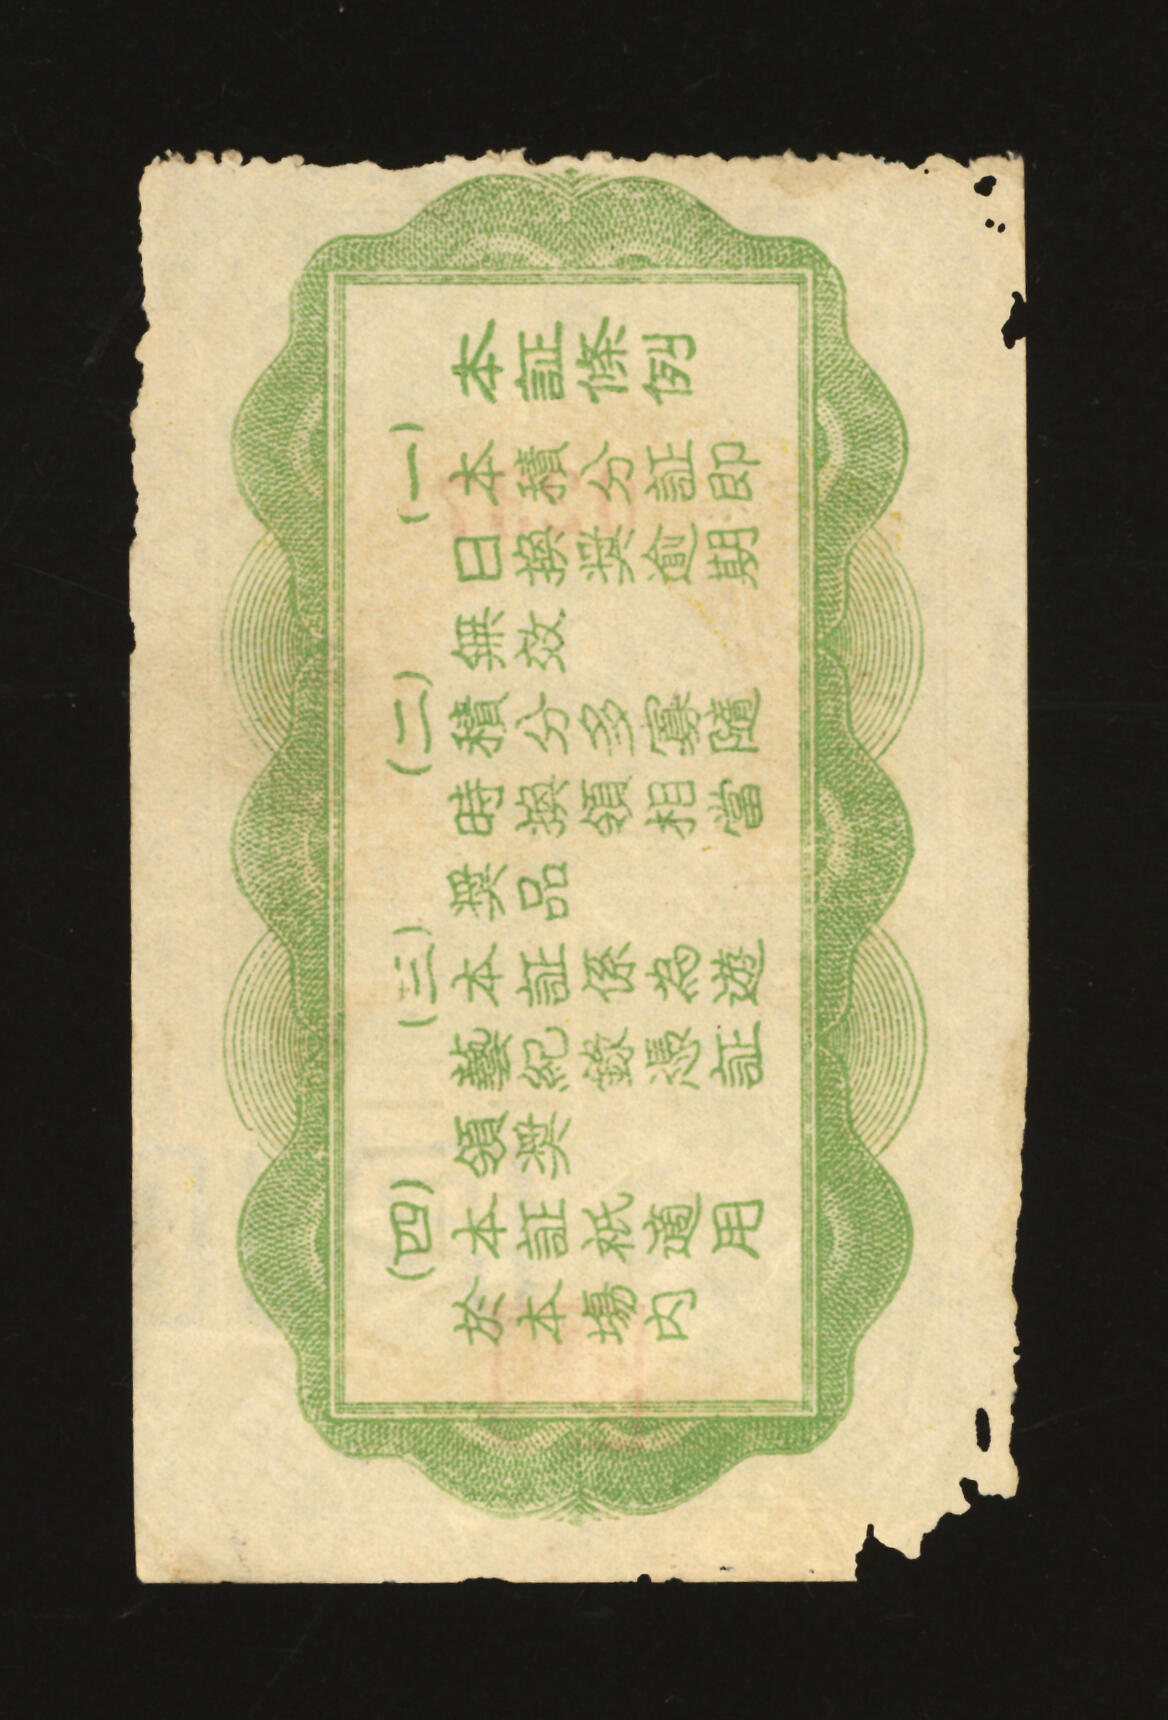 本証條例
(一)本積分証即
日換獎逾期
無效
(二)積分多寡隨
時換領相當
獎品
(三)本証係為遊
藝紀錄憑証
領獎
(四)本証祇適用
於本場內